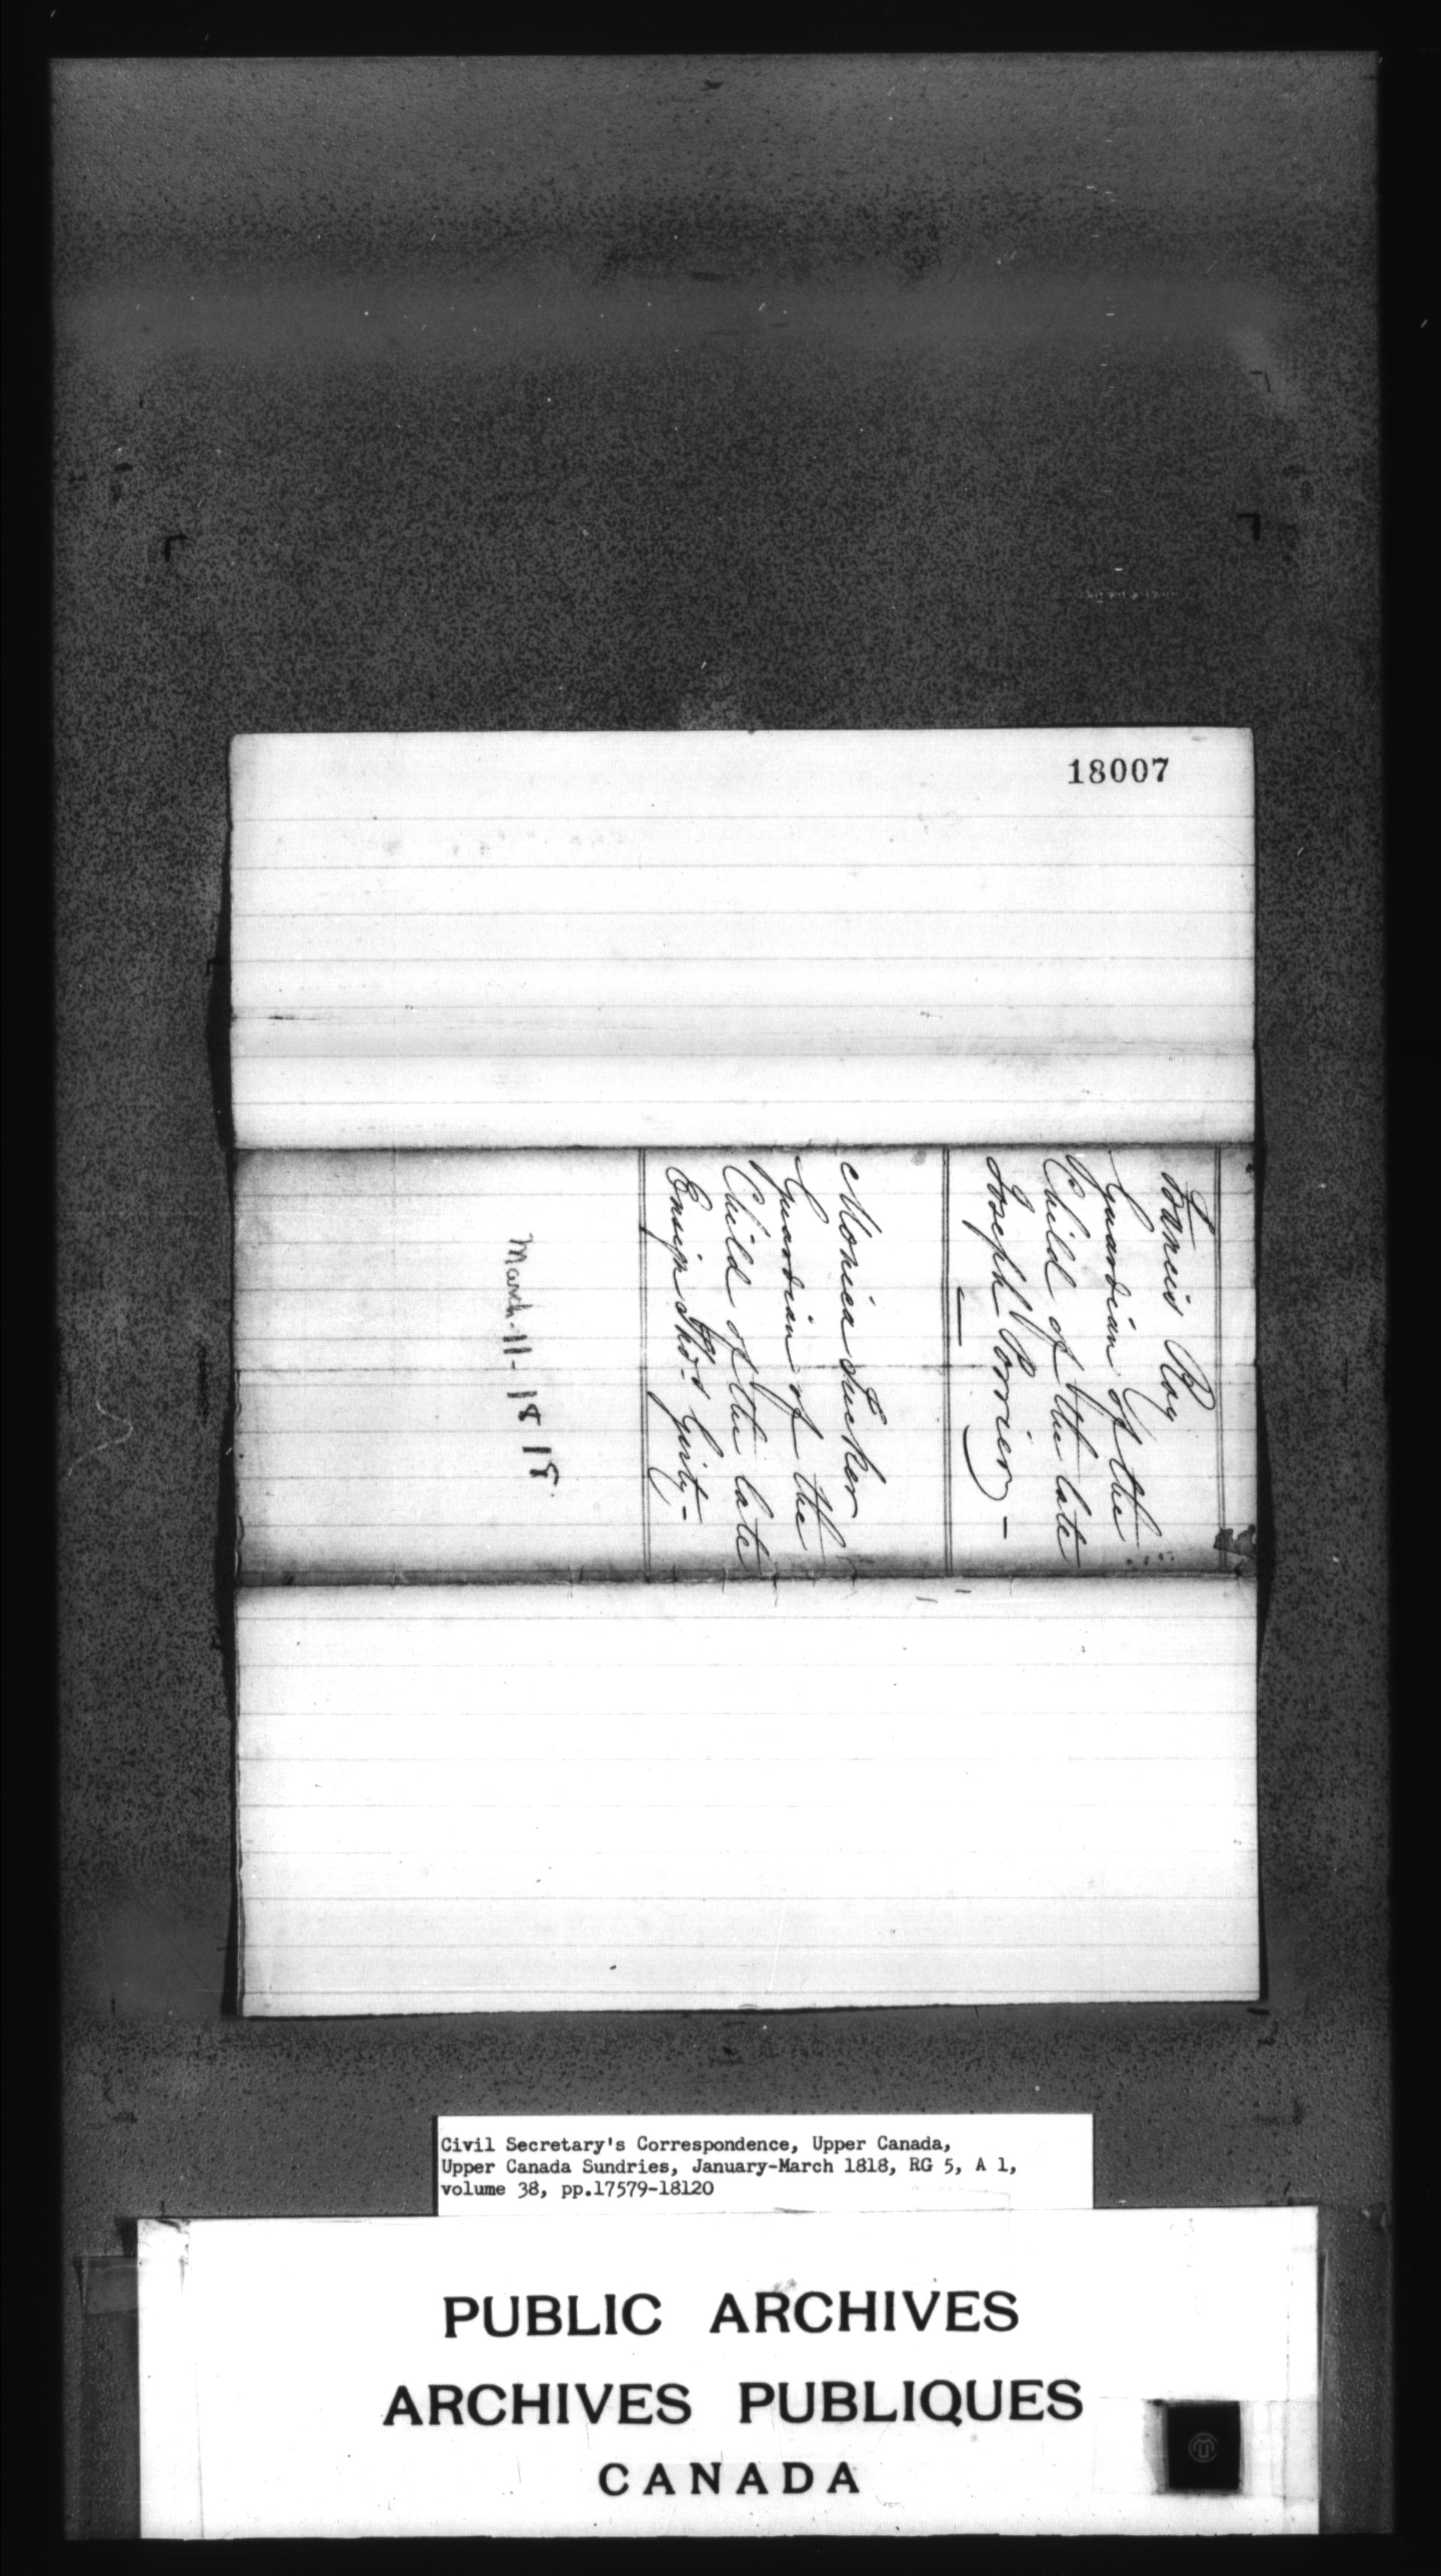 18007
Francis Roy
Guardian of the
Child of the late
Joseph Poirier –
Monica Tucker
Guardian of the
Child of the late
Ensign Thos Girty –
March 11 - 1818
Civil Secretary's Correspondence, Upper Canada,
Upper Canada Sundries, January-March 1818, RG 5, A 1,
volume 38, pp.17579-18120
PUBLIC ARCHIVES
ARCHIVES PUBLIQUES
CANADA